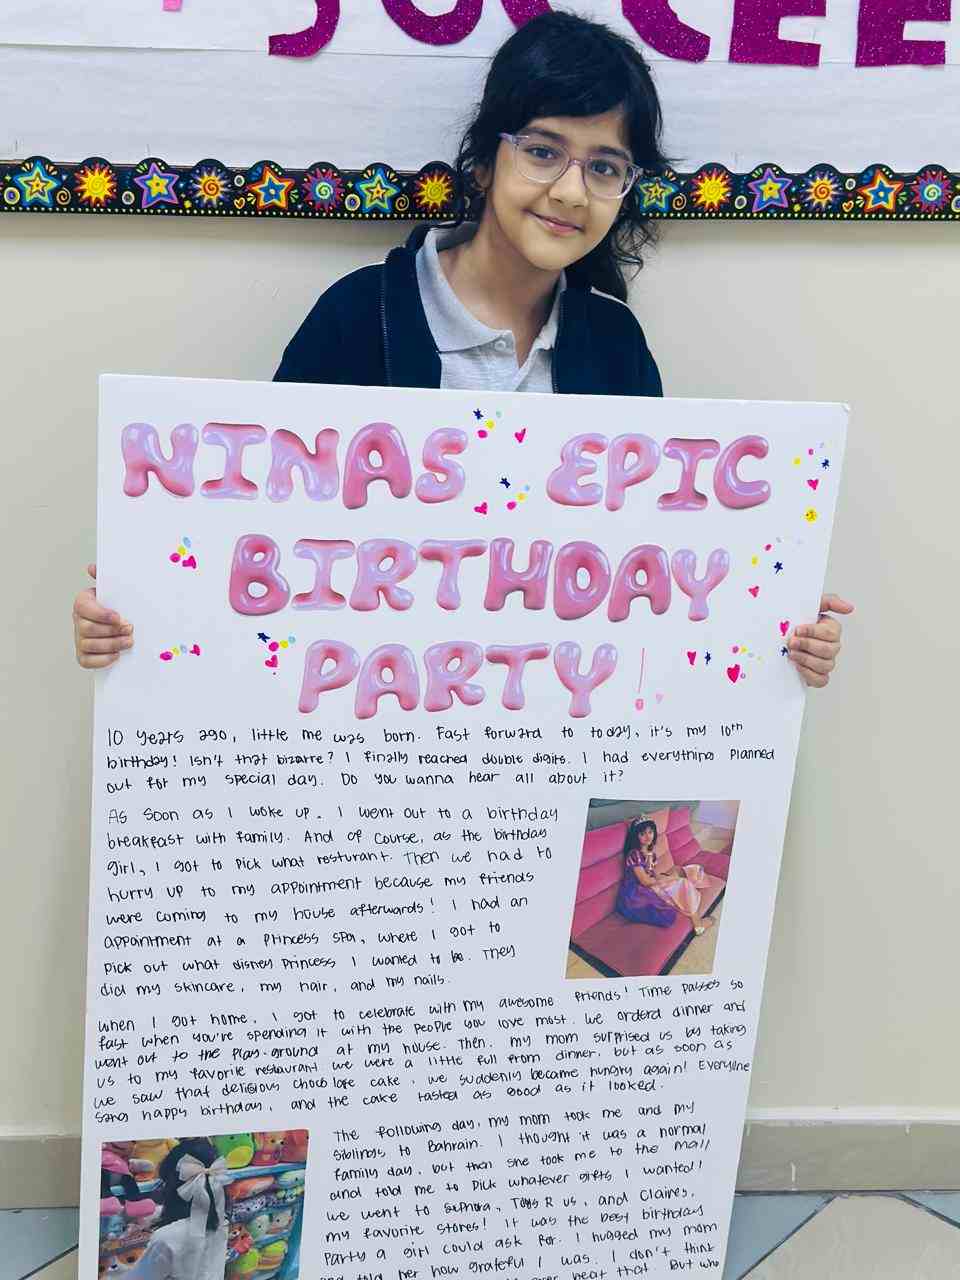 SUCCEE
NINAS EPIC
BIRTHDAY
PARTY!
10 years ago, little me was born. Fast forward to today, it's my 10th
birthday! Isn't that bizarre? I finally reached double digits. I had everything planned
out for my special day. Do you wanna hear all about it?
As soon as I woke up. I went out to a birthday
breakfast with family. And of course, as the birthday
girl, I got to pick what resturant. Then we had to
hurry up to my appointment because my friends
were coming to my house afterwards! I had an
appointment at a princess spa, where I got to
pick out what disney princess I wanted to be. They
did my skincare, my hair, and my nails.
when I got home, I got to celebrate with my awesome friends! Time passes so
fast when you're spending it with the people you love most. We orderd dinner and
went out to the play-ground at my house. Then, my mom surprised us by taking
us to my favorite restaurant we were a little full from dinner, but as soon as
we saw that delicious choco late cake, we suddenly became hungry again! Everyone
sang happy birthday, and the cake tasted as good as it looked.
The following day, my mom took me and my
siblings to Bahrain. I thought it was a normal
family day, but then she took me to the mall
and told me to pick whatever gifts I wanted!
we went to Sephora, Toys R us, and Claires,
my favorite stores! It was the best birthday
party a girl could ask for. I hugged my mom
and told her how grateful I was. I don't think
ever beat that. But who